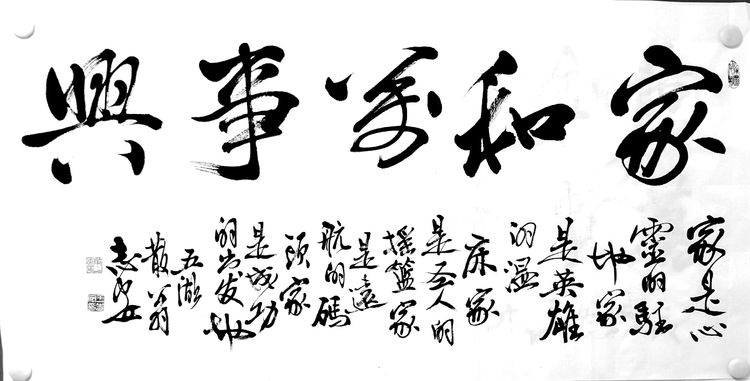 家和萬事興
家是心
靈的駐
地家
是英雄
的溫
床家
是人的
搖籃家
是遠
航的碼
頭家
是成功
的出发地
五湖
散翁
志